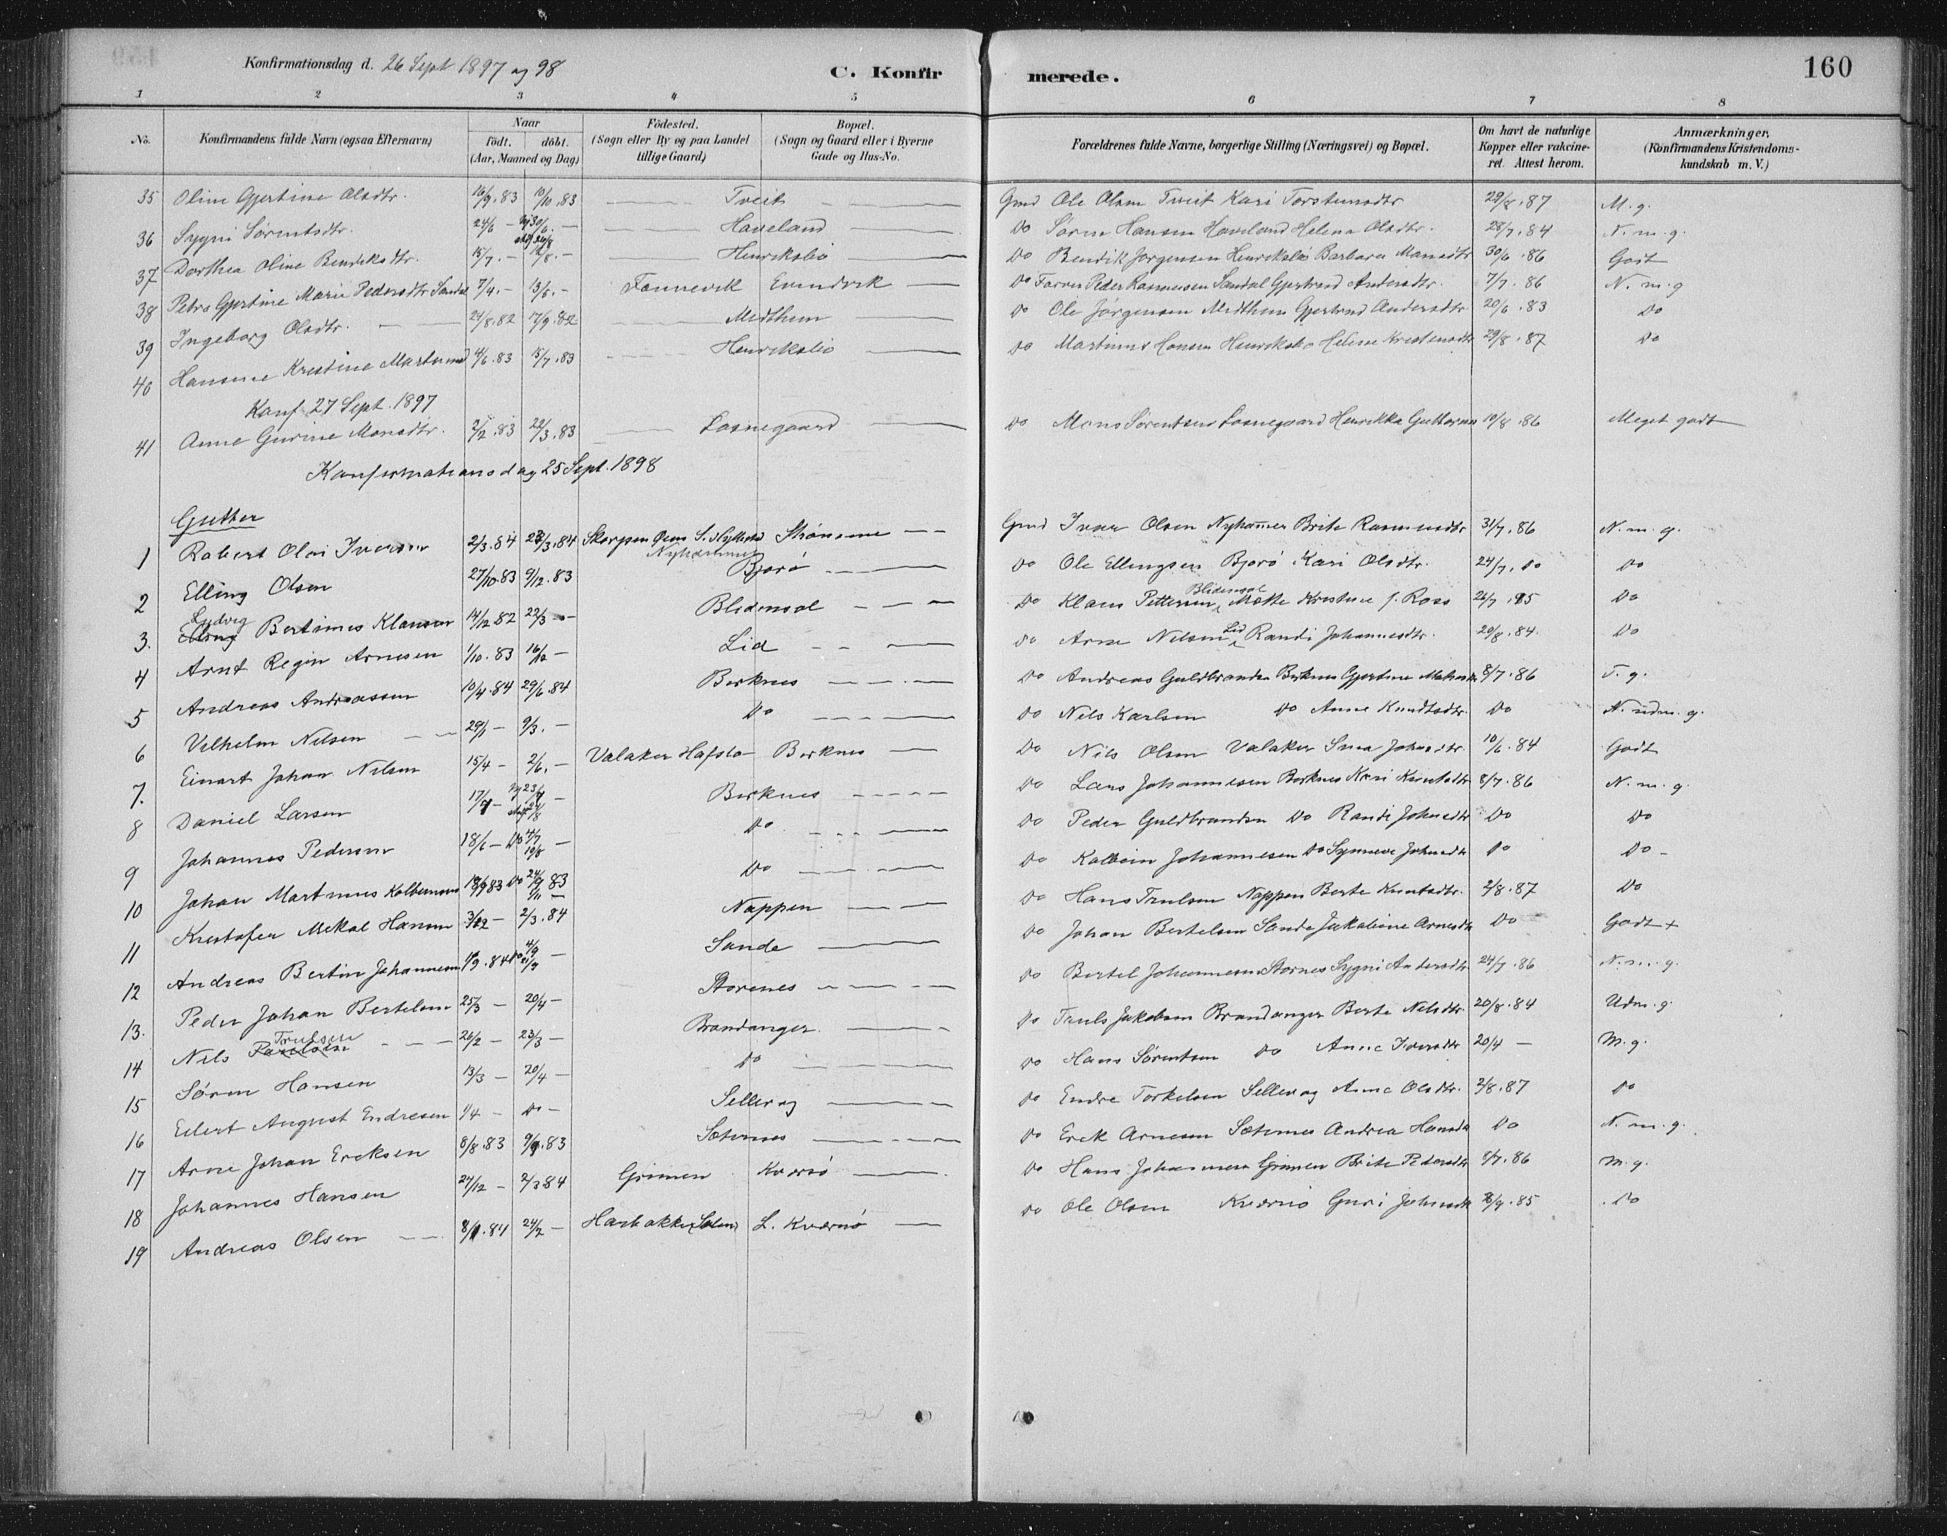 Konfirmationsdag d. 26 Sept 1897 og 98
C. Konfir merede. 160
1 2 3 4 5 6 7 8
No. Konfirmandens fulde Navn (ogsaa Efternavn) Naar födt. döbt. (Aar, Maaned og Dag) Födested. (Sogn eller By og paa Landet tillige Gaard) Bopæl. (Sogn og Gaard eller i Byerne Gade og Hus-No. Forældrenes fulde Navne, borgerlige Stilling (Næringsvei) og Bopæl. Om havt de naturlige Kopper eller vakcineret. Attest herom. Anmærkninger, (Konfirmandens Kristendomskundskab m. V.)
35 Oline Gjertine Olsdtr. 16/9.83 10/10.83 Tveit Gmd Ole Olsen Tveit Kari Torstensdtr 29/8.87 M. g.
36 Sygni Sørensdtr. 24/6 — 30/6. — Haveland Do Søren Hansen Haveland Helena Olsdtr. 28/7.84 N. m. g.
37 Dorthea Oline Bendiksdtr. 15/7. — /8. — Henriksbø Do Bendik Jørgensen Henriksbø Barbara Monsdtr 30/6.86 Godt
38 Petra Gjertine Marie Pedersdtr Sandal 7/4. — 13/6. — Fonnevik Evindvik Do Farver Peder Rasmussen Sandal Gjertrud Andersdtr. 7/7. 86 N. m. g
39 Ingeborg Olsdtr. 24/8.82 17/9.82 Midthun Do Ole Jørgensen Midthun Gjertrud Andersdtr 20/6.83 Do
40 Hansine Kristine Martinusd 4/6.83 15/7.83 Henriksbø Do Martinus Hansen Henriksbø Helene Kristensdtr 29/8.87 Do
Konf. 27 Sept. 1897
41 Anne Gurine Monsdtr. 2/2.83 22/3.83 Losnegaard Do Mons Sørensen Losnegaard Henrikka Guttorms 10/8.86 Meget godt
Konfirmationsdag 25 Sept. 1898
Gutter
1 Robert Olai Iversen 2/3.84 23/3.84 Skorpen Strønene Gmd Ivar Olsen Nyhammer Brite Rasmusdtr 31/7.86 N. m. g.
Nyhammer
2 Elling Olsen 27/10.83 9/12.83 Bjorø Do Ole Ellingsen Bjorø Kari Olsdtr. 24/7. Do Do
3. Ludvig Bertinus Klausen 14/12.82 22/3 — Blidensol Do Klaus Pettersen Blidensol Mette Kristine f. Ross 24/7.85 Do
4 Arnt Regin Arnesen 1/10.83 16/12 — Lid Do Arne Nilsen Lid Randi Johannesdtr. 20/8.84. Do
5 Andreas Andreassen 10/4.84 29/6.84 Berknes Do Andreas Guldbrandsen Berknes Gjertine 8/7.86 T. g.
6 Vilhelm Nilsen 29/1 — 9/3. — Do Do Nils Karlsen Do Anne Knudtsdtr. Do N. udm. g.
7. Einart Johan Nilsen 15/4 — 2/6. — Valaker Hafslo Berknes Do Nils Olsen Valaker Johnsdtr. 10/6.84 Godt
8 Daniel Larsen 17/7 — 23/7 — Berknes Do Lars Johannesen Berknes Kari Knutsdtr 8/7.86 N. m. g.
9 Johannes Pedersen 18/6 — Do 4/7 19/8 — Do Do Peder Guldbrandsen Do Randi Johnsdtr Do Do
10 Johan Martinus Kolbeinsen 18/9 83 Do 24/9 83 Do Do Kolbein Johannesen Do Synneve Johnsdtr Do Do —
11 Kristofer Mikal Hansen 3/12 — 2/3.84 Nappen Do Hans Trulsen Nappen Berte Knutsdtr. 2/8.87 Do
12 Andreas Bertin Johannesen /9.84 4/9 21/9 — Sande Do Johan Bertelsen Sande Jakobine Arnesdtr Do Godt +
13. Peder Johan Bertelsen 25/3 — 20/4 — Storenes Do Bertel Johannesen Stornes Sygni Andersdtr 24/7.86 N. m. g.
14 Nils Trulsen 26/2 — 23/3 — Brandanger Do Truls Jakobsen Brandanger Berte Nilsdtr 20/8.84 Udm. g.
15 Søren Hansen 13/3 — 20/4 — Do Do Hans Sørensen Do Anne Iversdtr 20/4 — M. g.
16 Eilert August Endresen 1/4 — Do — Sellevog Do Endre Torkelsen Sellevog Anne Olsdtr. 2/8.87 Do
17 Arne Johan Eriksen 8/8.83 9/9.83 Sætenes Do Erik Arnesen Sætenes Andrea Hansdtr Do N. m. g.
18 Johannes Hansen 24/12 — 2/3 84 Grimen Kvernø Do Hans Johannesen Grimen Brite Pedersdtr 8/7.86 M. g.
19 Andreas Olsen 8/1.84 24/2 — Harbakke (Solend) L. Kvernø Do Ole Olsen Kvernø Guri Johnsdtr /9.85 Do